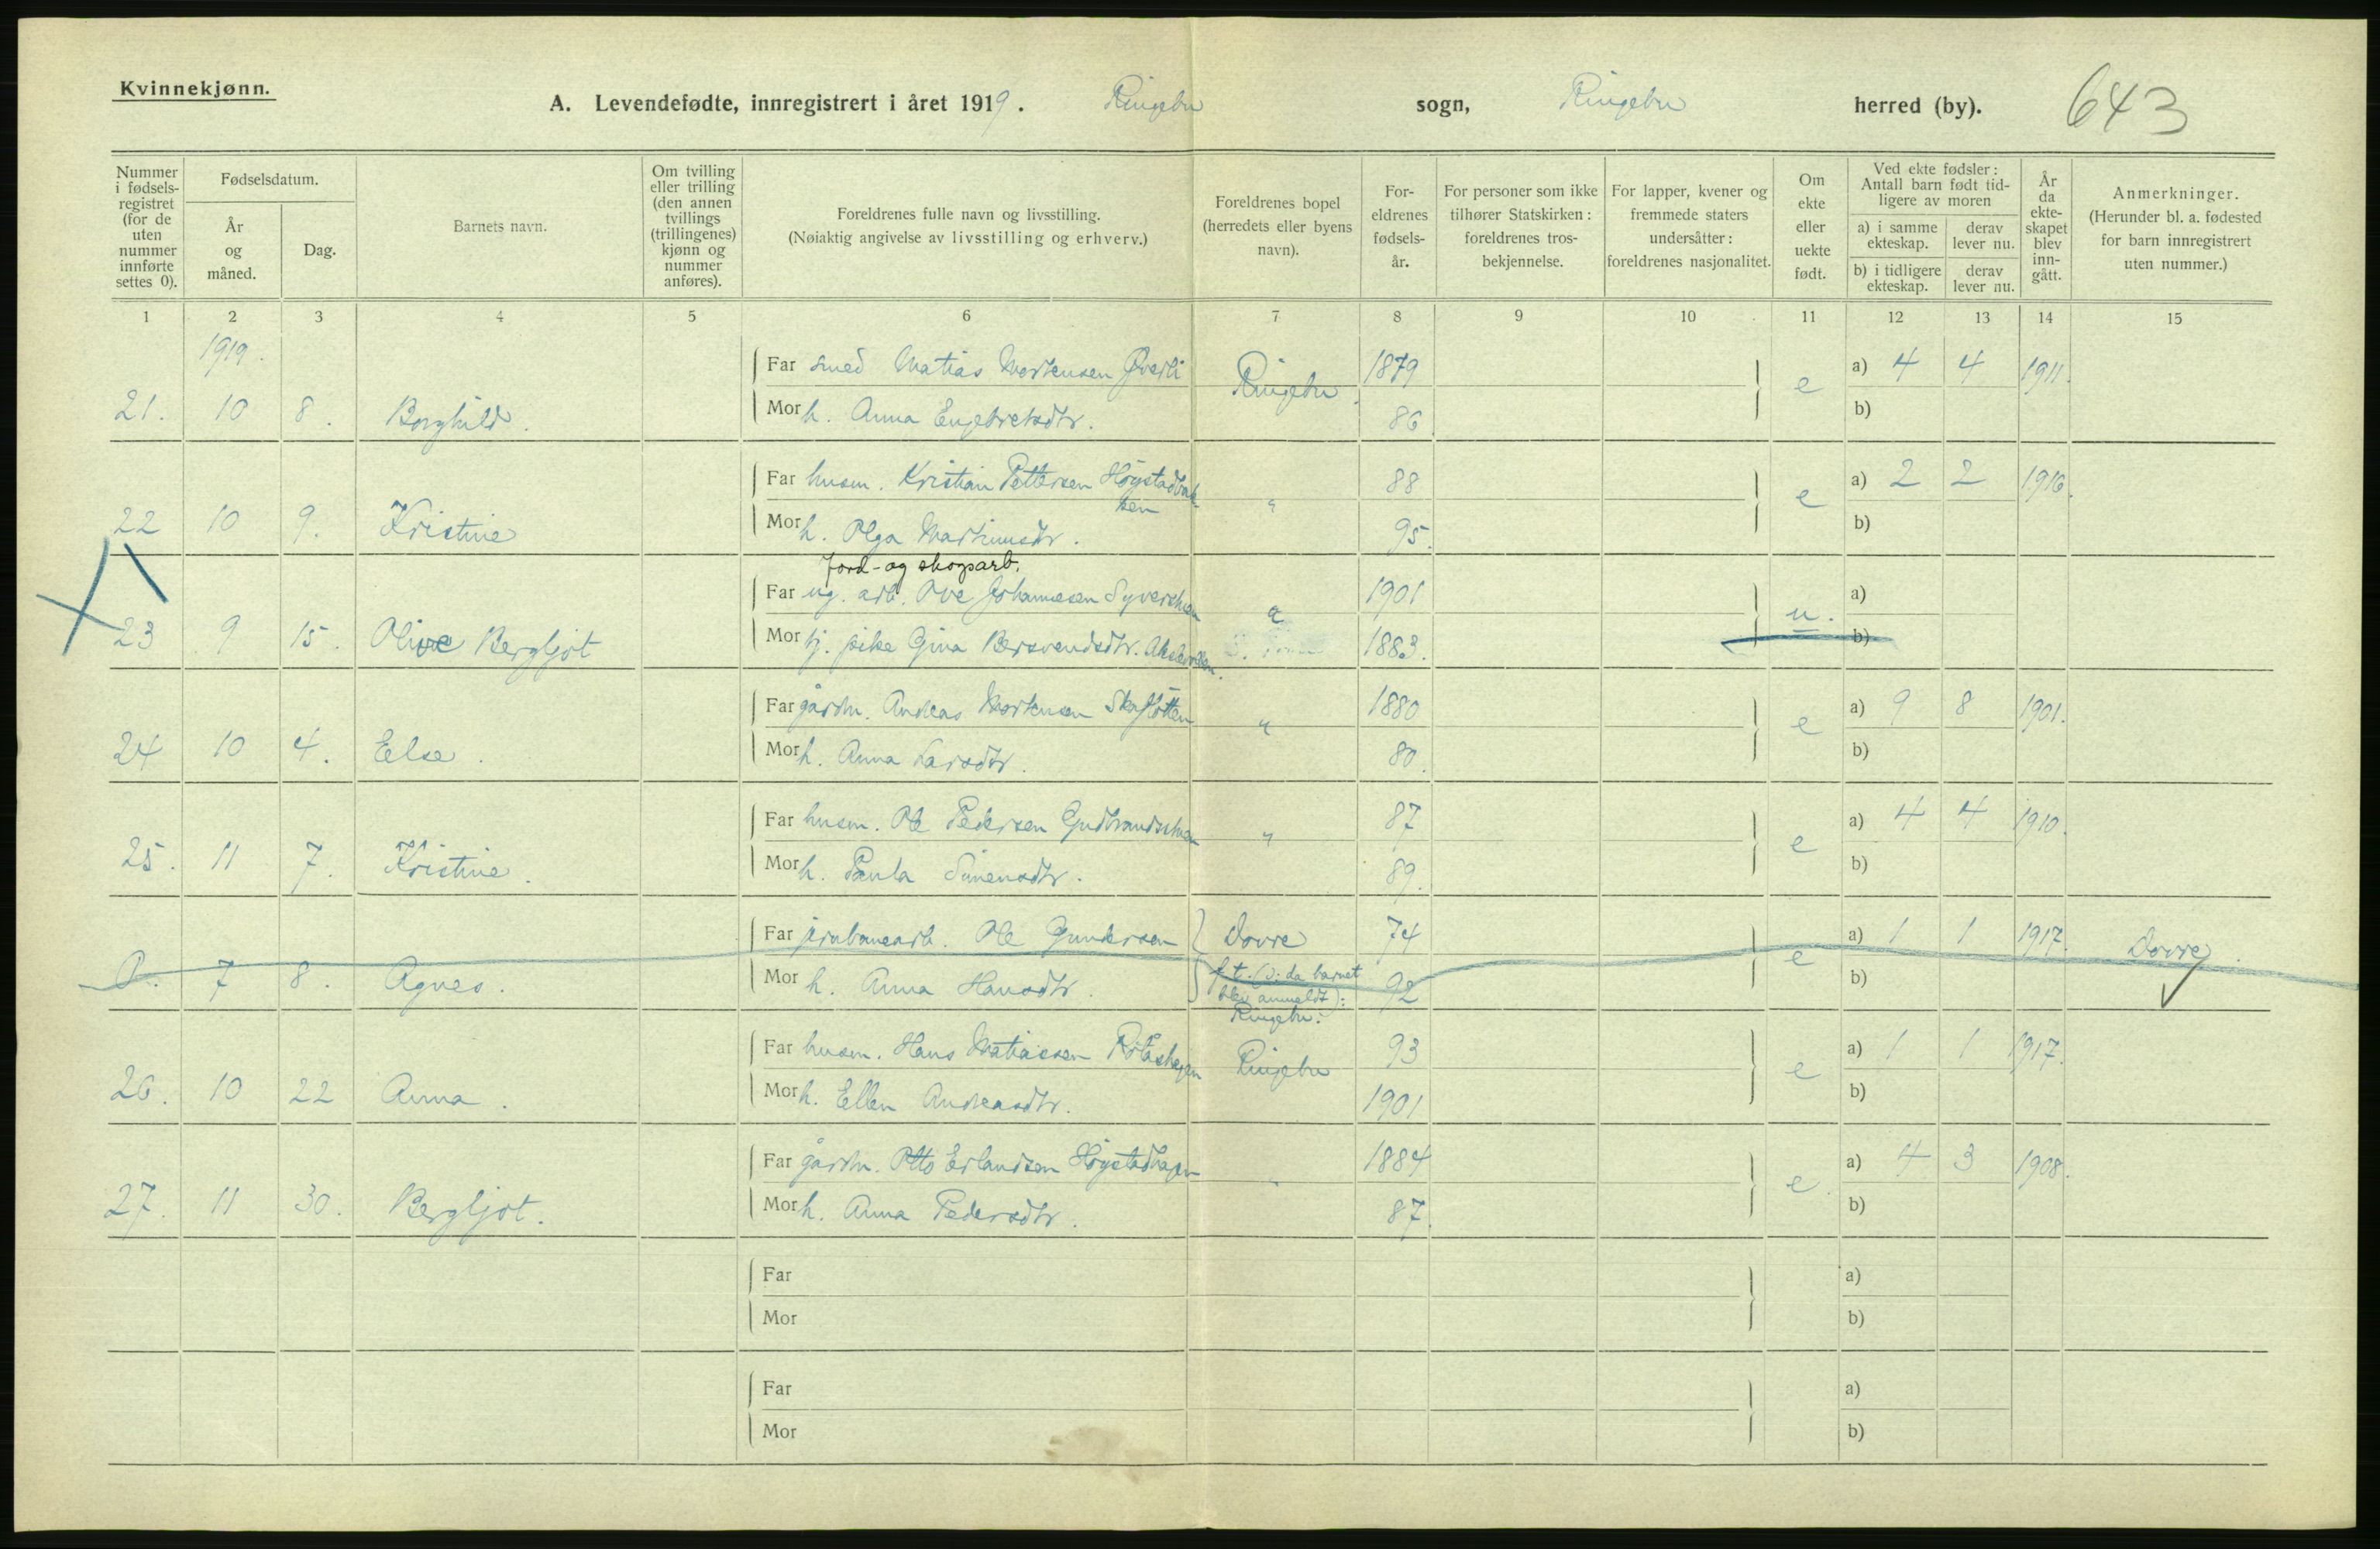 Kvinnekjønn.
A. Levendefødte, innregistrert i året 1919. Ringebu sogn, Ringebu herred (by). 643
Nummer i fødsels-registret (for de uten nummer innførte settes 0).
Fødselsdatum.
År og måned.
Dag.
Barnets navn.
Om tvilling eller trilling (den annen tvillings (trillingenes) kjønn og nummer anføres).
Foreldrenes fulle navn og livsstilling.
(Nøiaktig angivelse av livsstilling og erhverv.)
Foreldrenes bopel (herredets eller byens navn).
For-eldrenes fødsels-år.
For personer som ikke tilhører Statskirken: foreldrenes tros-bekjennelse.
For lapper, kvener og fremmede staters undersåtter: foreldrenes nasjonalitet.
Om ekte eller uekte født.
Ved ekte fødsler: Antall barn født tid-ligere av moren
a) i samme ekteskap. derav lever nu.
b) i tidligere ekteskap. derav lever nu.
År da ekte-skapet blev inn-gått.
Anmerkninger.
(Herunder bl. a. fødested for barn innregistrert uten nummer.)
1 2 3 4 5 6 7 8 9 10 11 12 13 14 15
1919.
Far smed Matias Mortensen Øverli Ringebu. 1879 e a) 4 4 1911.
21. 10 8. Borghild. Mor h. Anna Engebretsdtr. 86 b)
Far husm. Kristian Pettersen Høystadbak-ken " 88 e a) 2 2 1916.
22 10 9. Kristine Mor h. Olga Martinusdtr. 95. b)
Jord- og skogsarb.
Far ug. arb. Ove Johannesen 1901 u. a)
23 9 15. Olive Bergljot Mor tj. pike Gina Bersvendsdtr. 1883. b)
Far gårdm. Andreas Mortensen Skaflötten " 1880 e a) 9 8 1901.
24 10 4. Else. Mor h. Anna Larsdtr. 80. b)
Far husm. Ole Pedersen " 87 e a) 4 4 1910.
25. 11 7. Kristine. Mor h. Paula Simensdtr. 89. b)
Far jernbanearb. Ole Gundersen Dovre 74 e a) 1 1 1917. Dovre.
0. 7 8. Agnes. Mor h. Anna Hansdtr. f. t. (ɔ: da barnet blev anmeldt): Ringebu. 92 b)
Far husm. Hans Matiassen Ringebu 93 e a) 1 1 1917.
26. 10 22 Anna. Mor h. Ellen Andreasdtr. 1901 b)
Far gårdm. Otto Erlandsen Høystadhagen " 1884 e. a) 4 3 1908.
27. 11 30. Bergljot. Mor h. Anna Pedersdtr. 87. b)
Far a)
Mor b)
Far a)
Mor b)